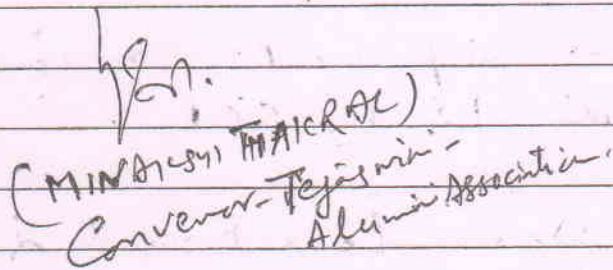 (MINAKSHI THAKRAL)
Convenor-Tejasvini-
Alumni Association.